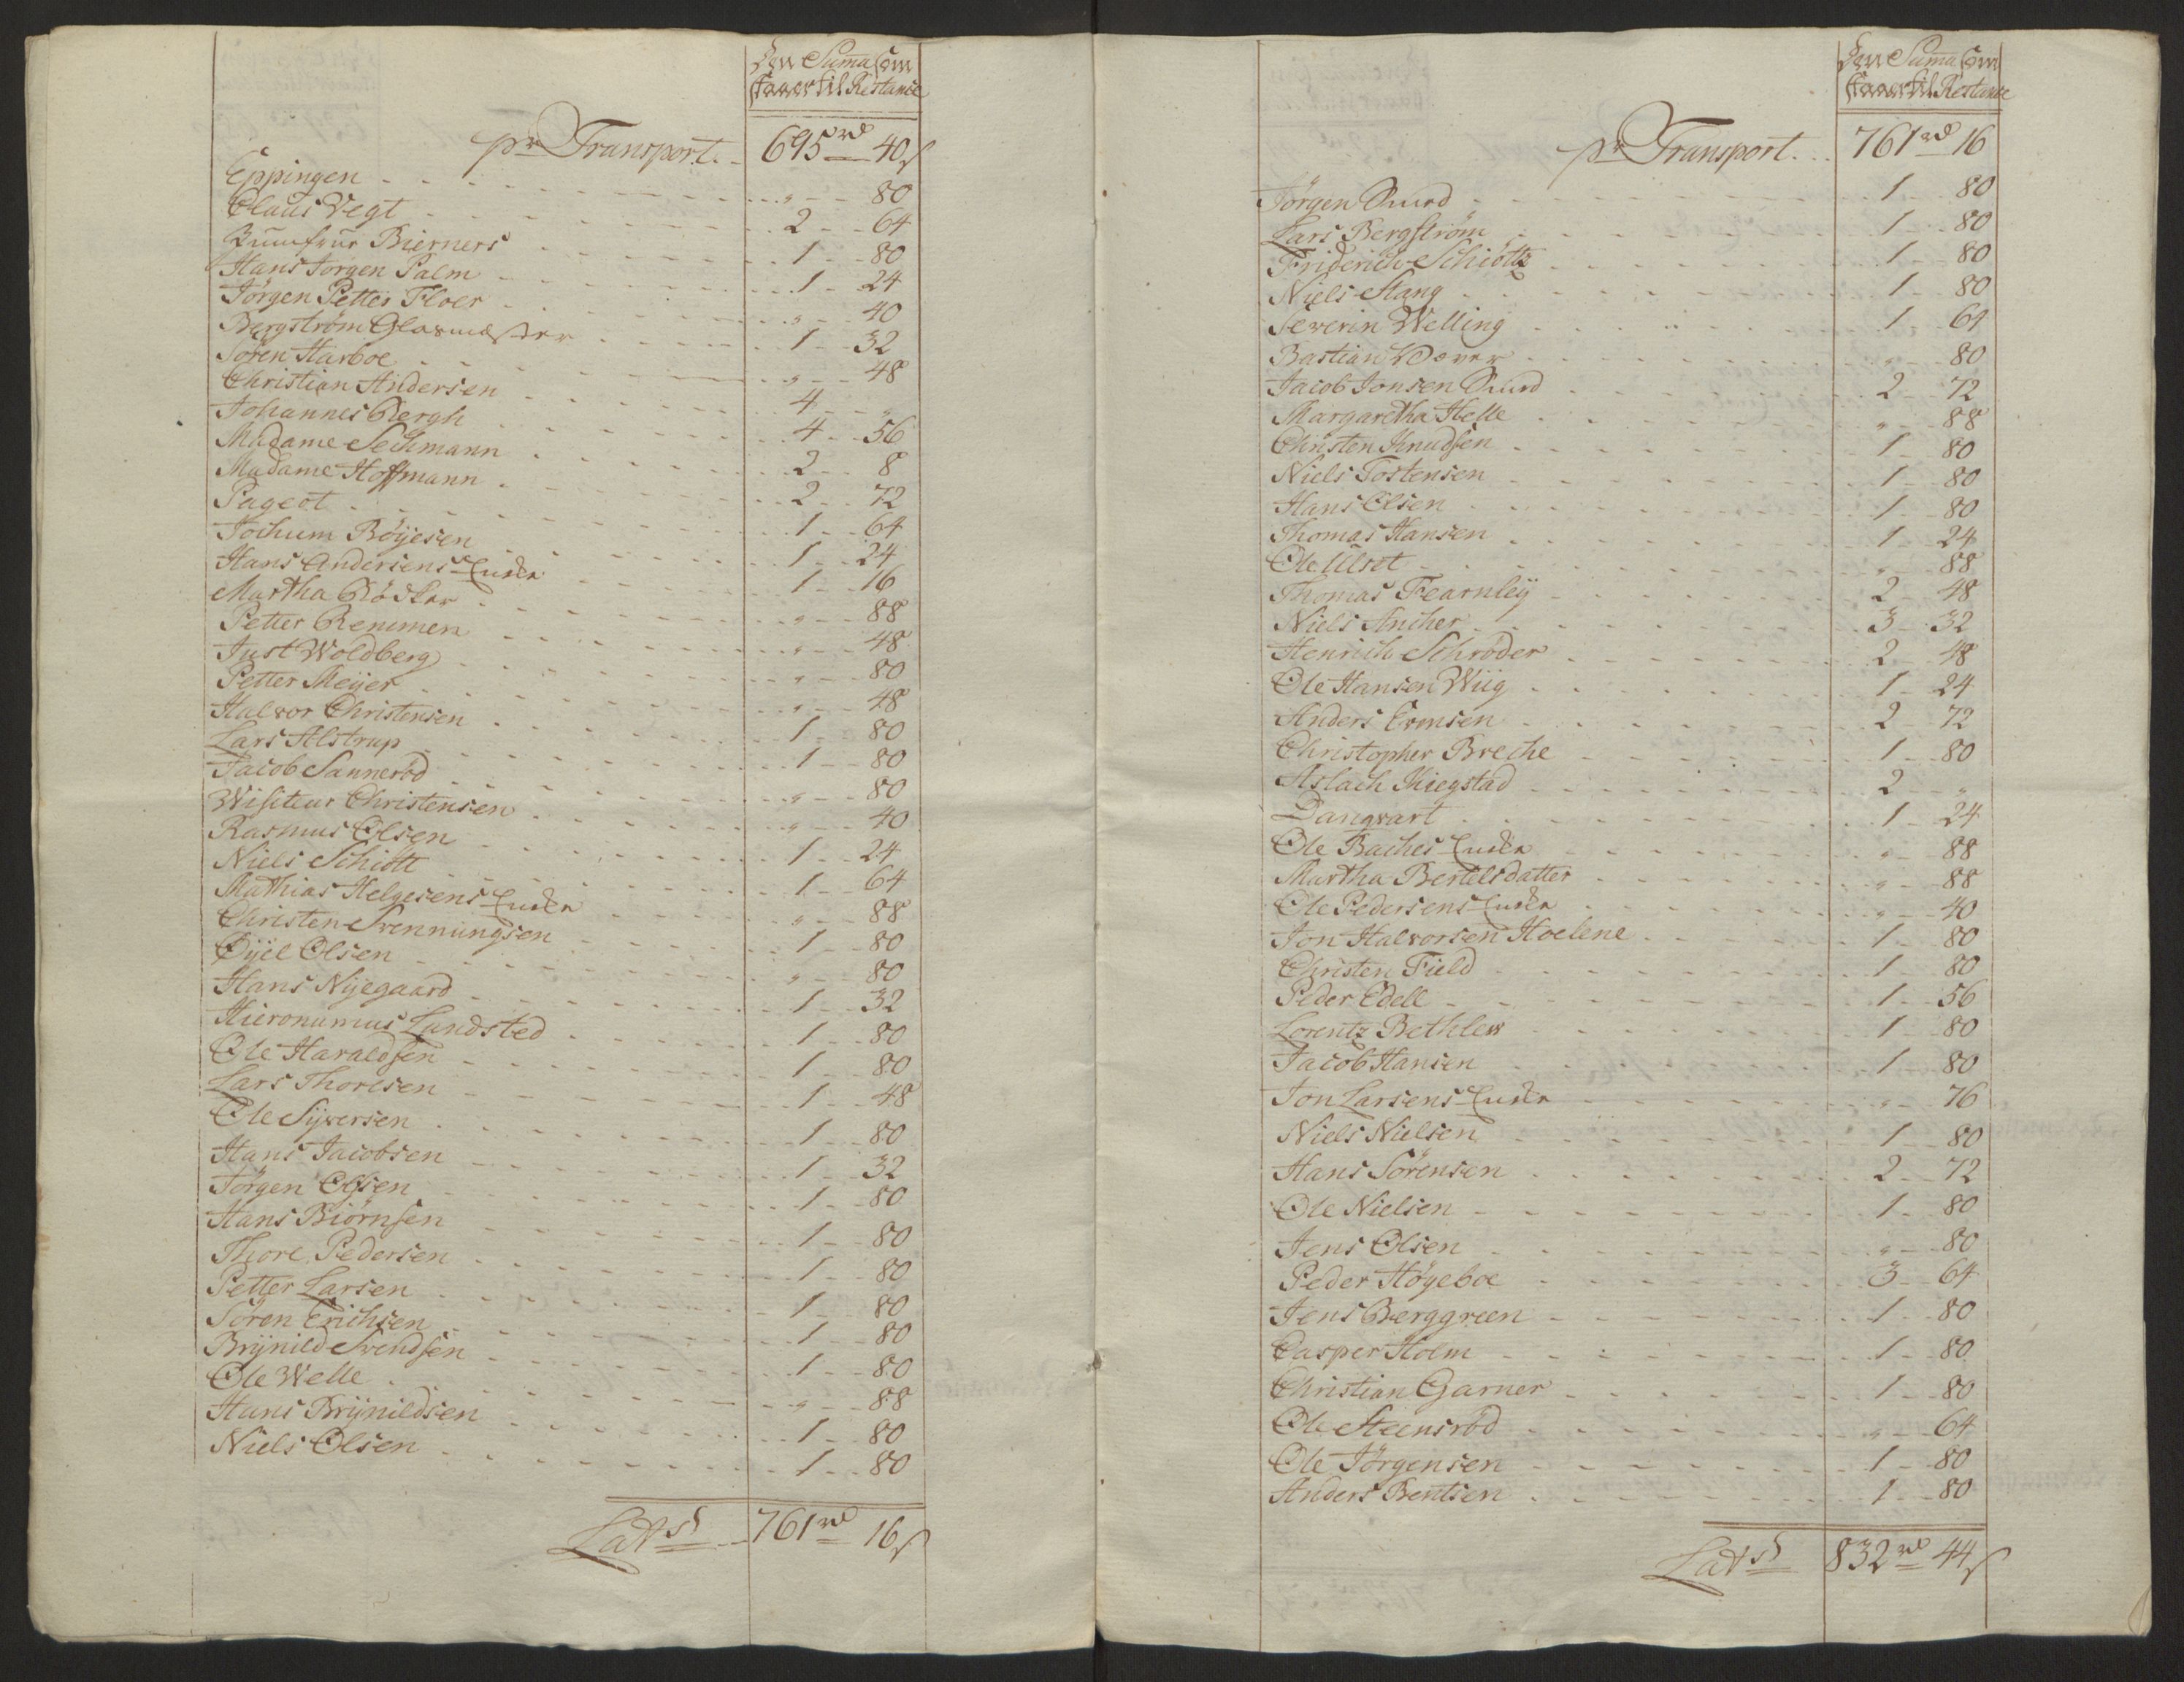 Den Suma som
staaer til Restance
pr Transport. 695 rd 40 s
Eppingen " 80
Claus Vegt 2 64
Jumfrue Bierners 1 80
Hans Jørgen Palm 1 24
Jörgen Petter Floer " 40
Bergström Glarmester 1 32
Sören Harboe " 48
Christian Andersen 4 "
Johannes Bergh 4 56
Madame Sechmann 2 8
Madame Hoffmann 2 72
Pageot 1 64
Jochum Böyesen 1 24
Hans Andersens Encke 1 16
Martha Bödker " 88
Petter Remmen " 48
Just Woldberg " 80
Petter Meyer " 48
Halvor Christensen 1 80
Lars Alstrup 1 80
Jacob Sanneröd " 80
Visiteur Christensen " 40
Rasmus Olsen 1 24
Niels Schiött 1 64
Mathias Helgesens Encke " 88
Christen Svenningsen 1 80
Eyel Olsen " 80
Hans Nyegaard 1 32
Hieronumus Landsted 1 80
Ole Haraldsen 1 80
Lars Thoresen 1 48
Ole Syversen 1 80
Hans Jacobsen 1 32
Jörgen Olsen 1 80
Hans Biörnsen 1 80
Thore Pedersen 1 80
Petter Larsen 1 80
Sören Erichsen 1 80
Brynild Svendsen 1 80
Ole Welle " 88
Hans Brynildsen 1 80
Niels Olsen 1 80
Lat s 761 rd 16 s
Den Suma som
staaer til Restance
pr Transport. 761 rd 16
Jörgen Smed 1 80
Lars Bergström 1 80
Friderich Schiöttz 1 80
Niels Stang 1 80
Severin Welling 1 64
Bastian Væver " 80
Jacob Jonsen Smed 2 72
Margaretha Helle " 88
Christen Knudsen 1 80
Niels Tostensen 1 80
Hans Olsen 1 80
Thomas Hansen 1 24
Ole Ulset " 88
Thomas Fearnley 2 48
Niels Ancher 3 32
Henrich Schröder 2 48
Ole Hansen Wiig 1 24
Anders Evensen 2 72
Christopher Breche 1 80
Aslach Kiegstad 2 "
Danqvart 1 24
Ole Baches Encke " 88
Martha Bertelsdatter " 88
Ole Pedersens Encke " 40
Jon Halvorsen Hoelene 1 80
Christen Field 1 80
Peder Edell 1 56
Lorentz Bethlew 1 80
Jacob Hansen 1 80
Jon Larsens Encke " 76
Niels Nielsen 1 80
Hans Sörensen 2 72
Ole Nielsen 1 80
Jens Olsen " 80
Peder Högeboe 3 64
Jens Berggreen 1 80
Casper Holm 1 80
Christian Garner 1 80
Ole Steensröd " 64
Ole Jörgensen 1 80
Anders Bentsen 1 80
Lat s 832 rd 44 s